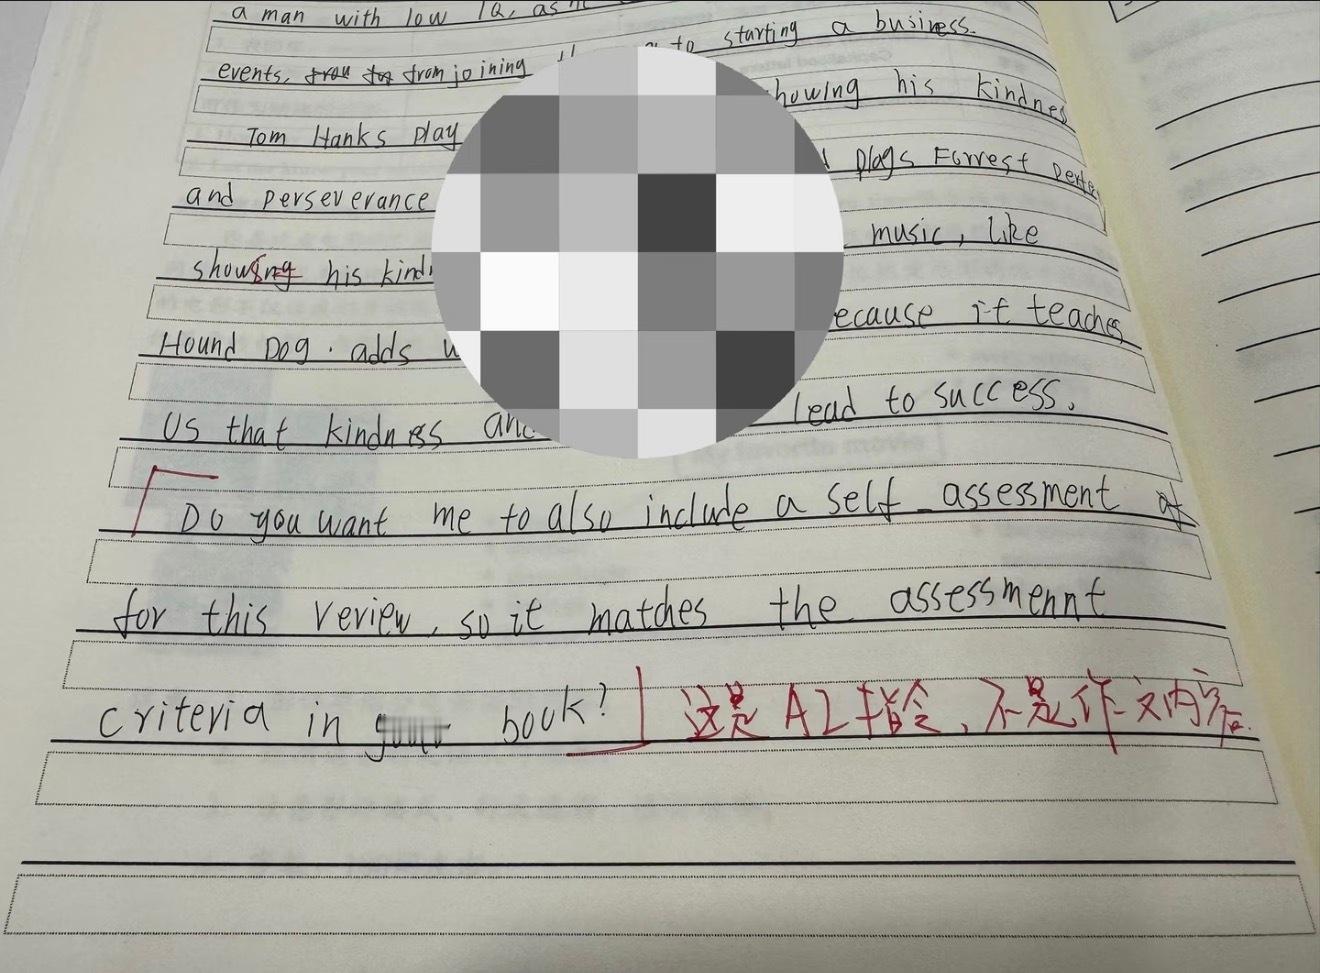 a man with low IQ, as
to starting a business.
events, from joining
showing his kindnes
Tom Hanks play
plays Forrest
and perseverance
music, like
showing his kind
because it teaches
Hound Dog. adds
lead to success.
Us that kindness and
Do you want me to also include a self-assessment of
for this review, so it matches the assessmennt
criteria in your book? 这是AI指令,不是作文内容.